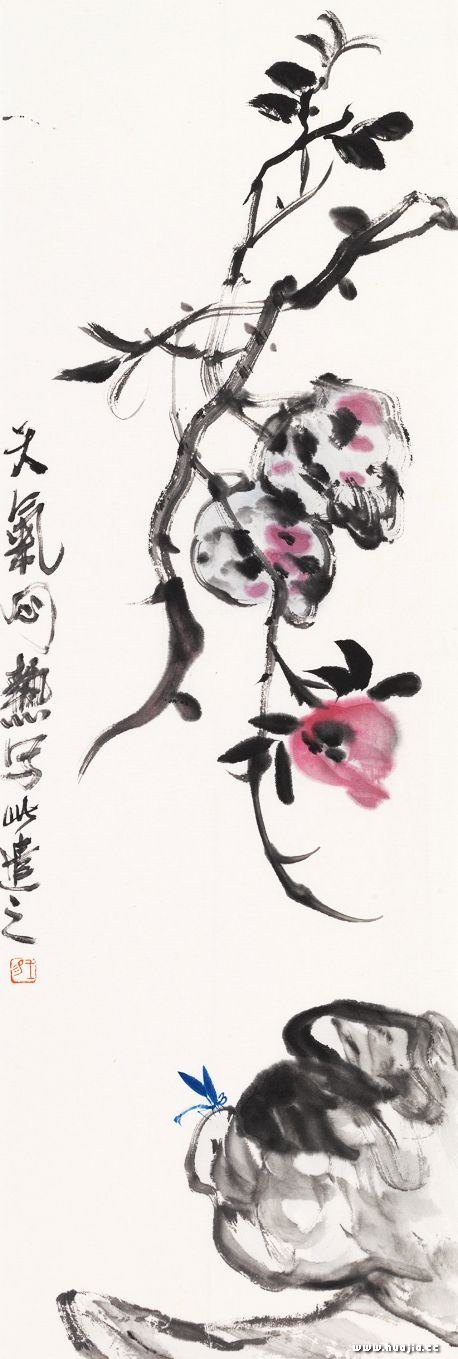 天氣闷熱写此遣之
www.huajia.cc